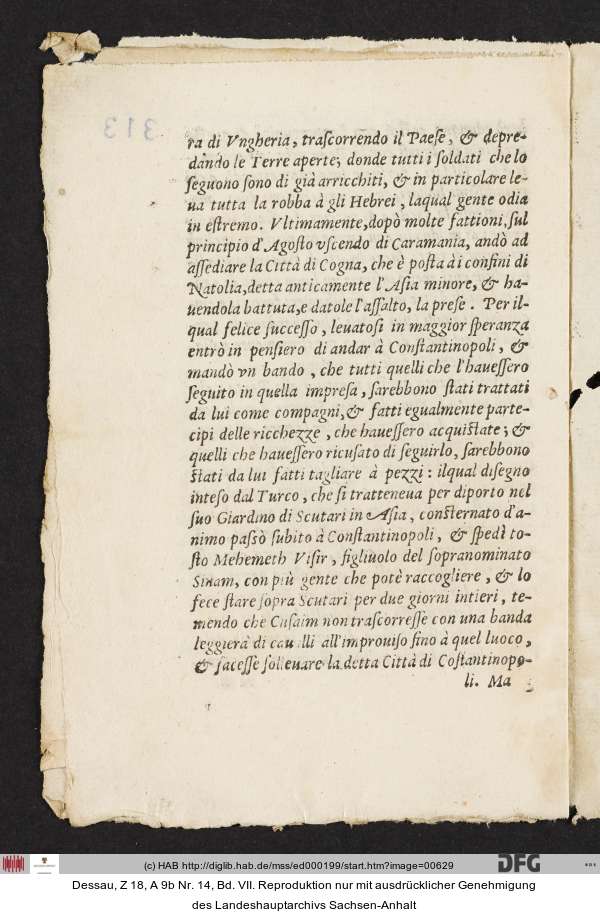 313
ra di Vngheria, traſcorrendo il Paeſe, & depre-
dando le Terre aperte; donde tutti i ſoldati che lo
ſeguono ſono di già arricchiti, & in particolare le-
ua tutta la robba à gli Hebrei, laqual gente odia
in eſtremo. Vltimamente, dopò molte fattioni, ſul
principio d'Agoſto vſcendo di Caramania, andò ad
aſſediare la Città di Cogna, che è poſta à i confini di
Natolia, detta anticamente l'Aſia minore, & ha-
uendola battuta, e datole l'aſſalto, la preſe. Per il-
qual felice ſucceſſo, leuatoſi in maggior ſperanza
entrò in penſiero di andar à Conſtantinopoli, &
mandò vn bando, che tutti quelli che l'haueſſero
ſeguito in quella impreſa, ſarebbono ſtati trattati
da lui come compagni, & fatti egualmente parte-
cipi delle ricchezze, che haueſſero acquiſtate; &
quelli che haueſſero ricuſato di ſeguirlo, ſarebbono
ſtati da lui fatti tagliare à pezzi: ilqual diſegno
inteſo dal Turco, che ſi tratteneua per diporto nel
ſuo Giardino di Scutari in Aſia, conſternato d'a-
nimo paſsò ſubito à Conſtantinopoli, & ſpedì to-
ſto Mehemeth Viſir, figliuolo del ſopranominato
Sinam, con più gente che potè raccogliere, & lo
fece ſtare ſopra Scutari per due giorni intieri, te-
mendo che Cuſaim non traſcorreſſe con una banda
leggiera di caualli all'improuiſo fino à quel luoco,
& faceſſe ſolleuare la detta Città di Coſtantinopo-
li. Ma
(c) HAB http://diglib.hab.de/mss/ed000199/start.htm?image=00629
DFG
Dessau, Z 18, A 9b Nr. 14, Bd. VII. Reproduktion nur mit ausdrücklicher Genehmigung
des Landeshauptarchivs Sachsen-Anhalt